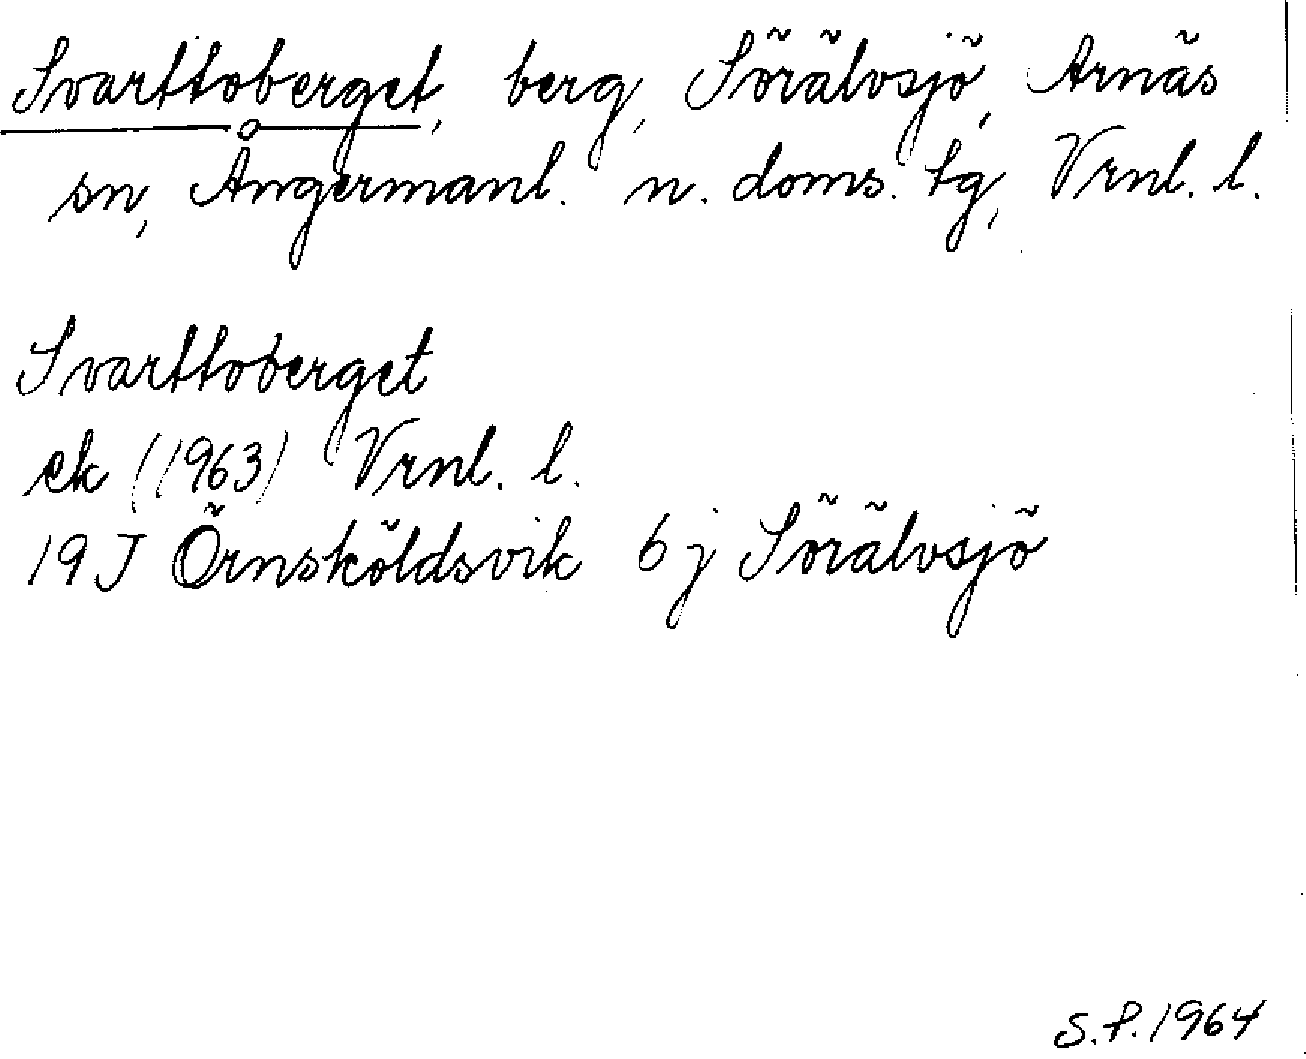 Svarttoberget, berg, Sörälvsjö, Arnäs
sn, Ångermanl. n. doms. tg, Vrnl. l.
Svarttoberget
ek (1963) Vrnl. l.
19J Örnsköldsvik 6j Sörälvsjö
S.P. 1964